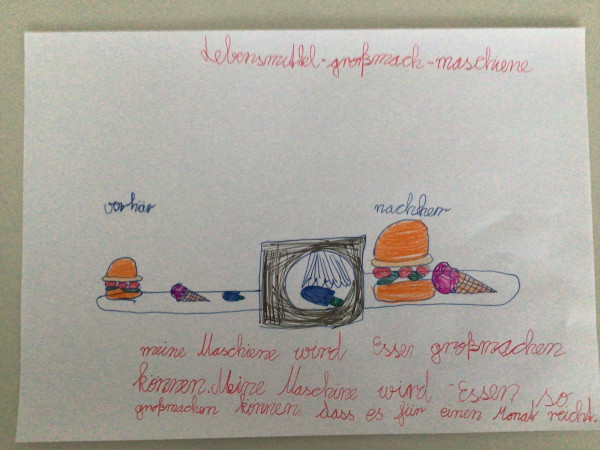 Lebensmittel-großmack-maschiene
vorhär
nachher
meine Maschiene wird Essen großmachen
können. Meine Maschine wird Essen so
großmachen können dass es für einen Monat reicht.